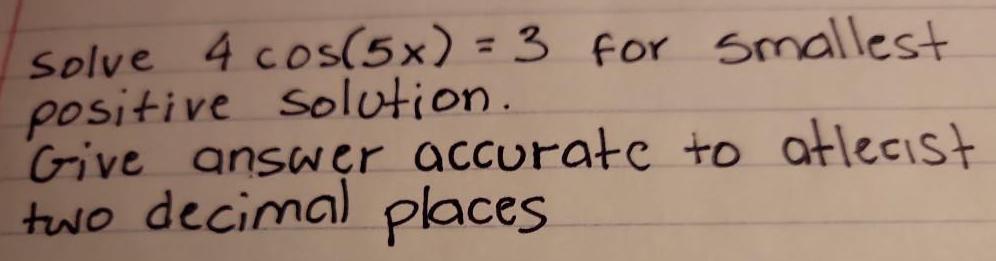 solve 4 cos(5x) = 3 for smallest
positive solution.
Give answer accurate to atleast
two decimal places